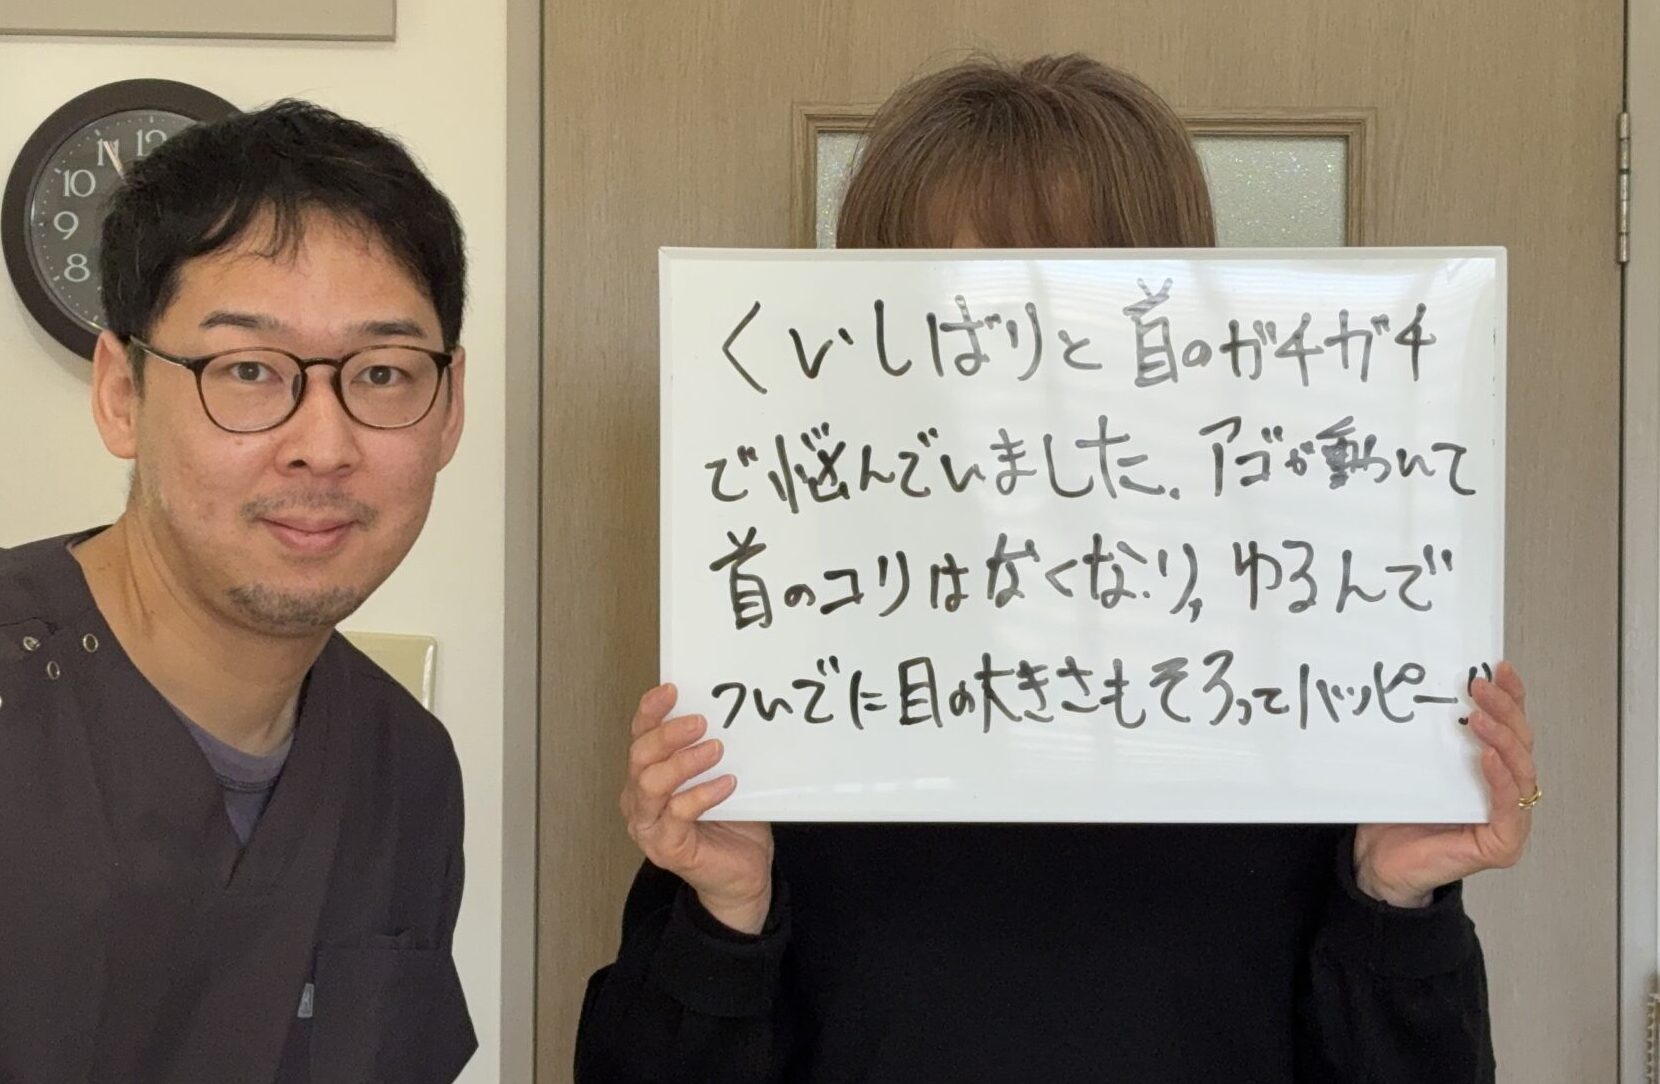 12
11
10
9
8
くいしばりと首のガチガチ
で悩んでいました。アゴが動いて
首のコリはなくなり、ゆるんで
ついでに目の大きさもそろってハッピー!!